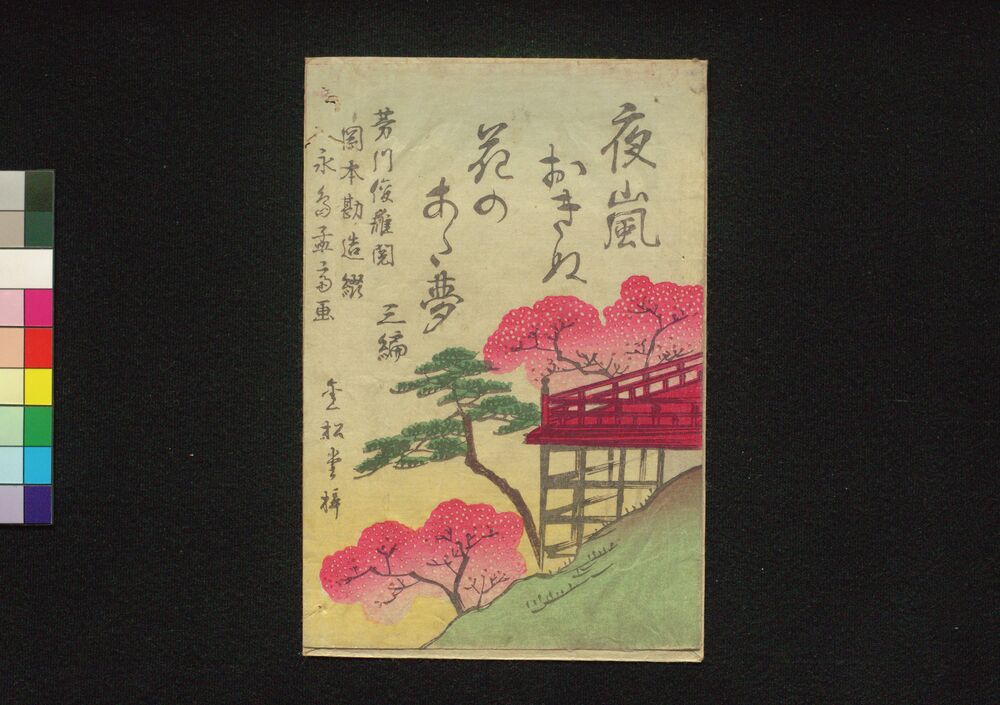 夜嵐
おきぬ
花の
あだ夢
芳川俊雄閲
三編
岡本勘造綴
永島孟斎画
金松堂梓